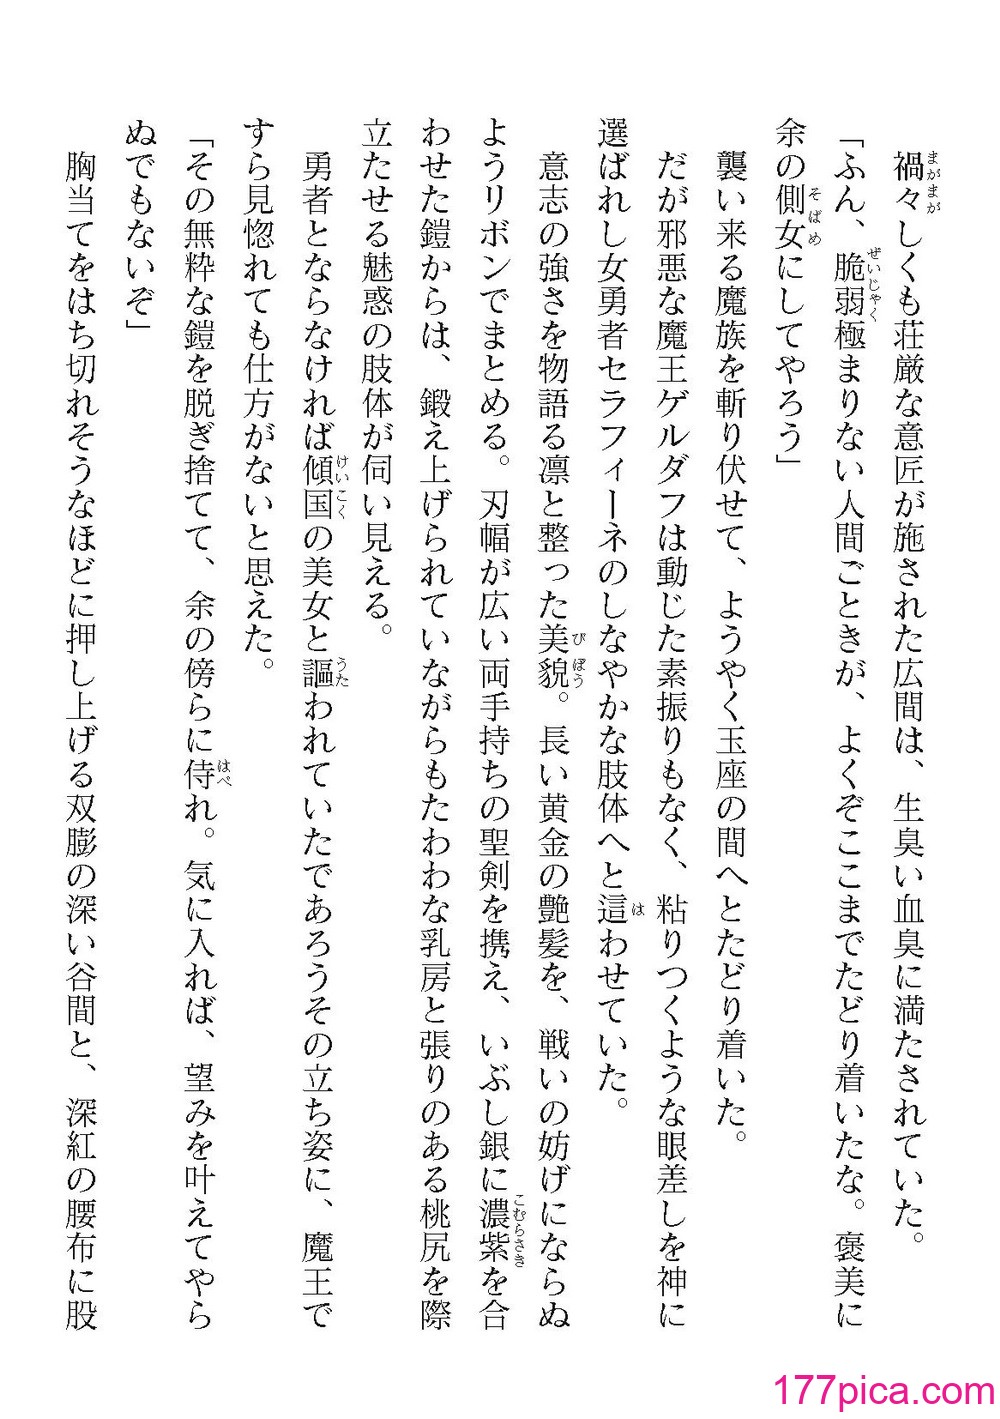 禍々しくも荘厳な意匠が施された広間は、生臭い血臭に満たされていた。
「ふん、脆弱極まりない人間ごときが、よくぞここまでたどり着いたな。褒美に
余の側女にしてやろう」
襲い来る魔族を斬り伏せて、ようやく玉座の間へとたどり着いた。
だが邪悪な魔王ゲルダフは動じた素振りもなく、粘りつくような眼差しを神に
選ばれし女勇者セラフィーネのしなやかな肢体へと這わせていた。
意志の強さを物語る凛と整った美貌。長い黄金の艶髪を、戦いの妨げにならぬ
ようリボンでまとめる。刃幅が広い両手持ちの聖剣を携え、いぶし銀に濃紫を合
わせた鎧からは、鍛え上げられていながらもたわわな乳房と張りのある桃尻を際
立たせる魅惑の肢体が伺い見える。
勇者とならなければ傾国の美女と謳われていたであろうその立ち姿に、魔王で
すら見惚れても仕方がないと思えた。
「その無粋な鎧を脱ぎ捨てて、余の傍らに侍れ。気に入れば、望みを叶えてやら
ぬでもないぞ」
胸当てをはち切れそうなほどに押し上げる双膨の深い谷間と、深紅の腰布に股
177pica.com